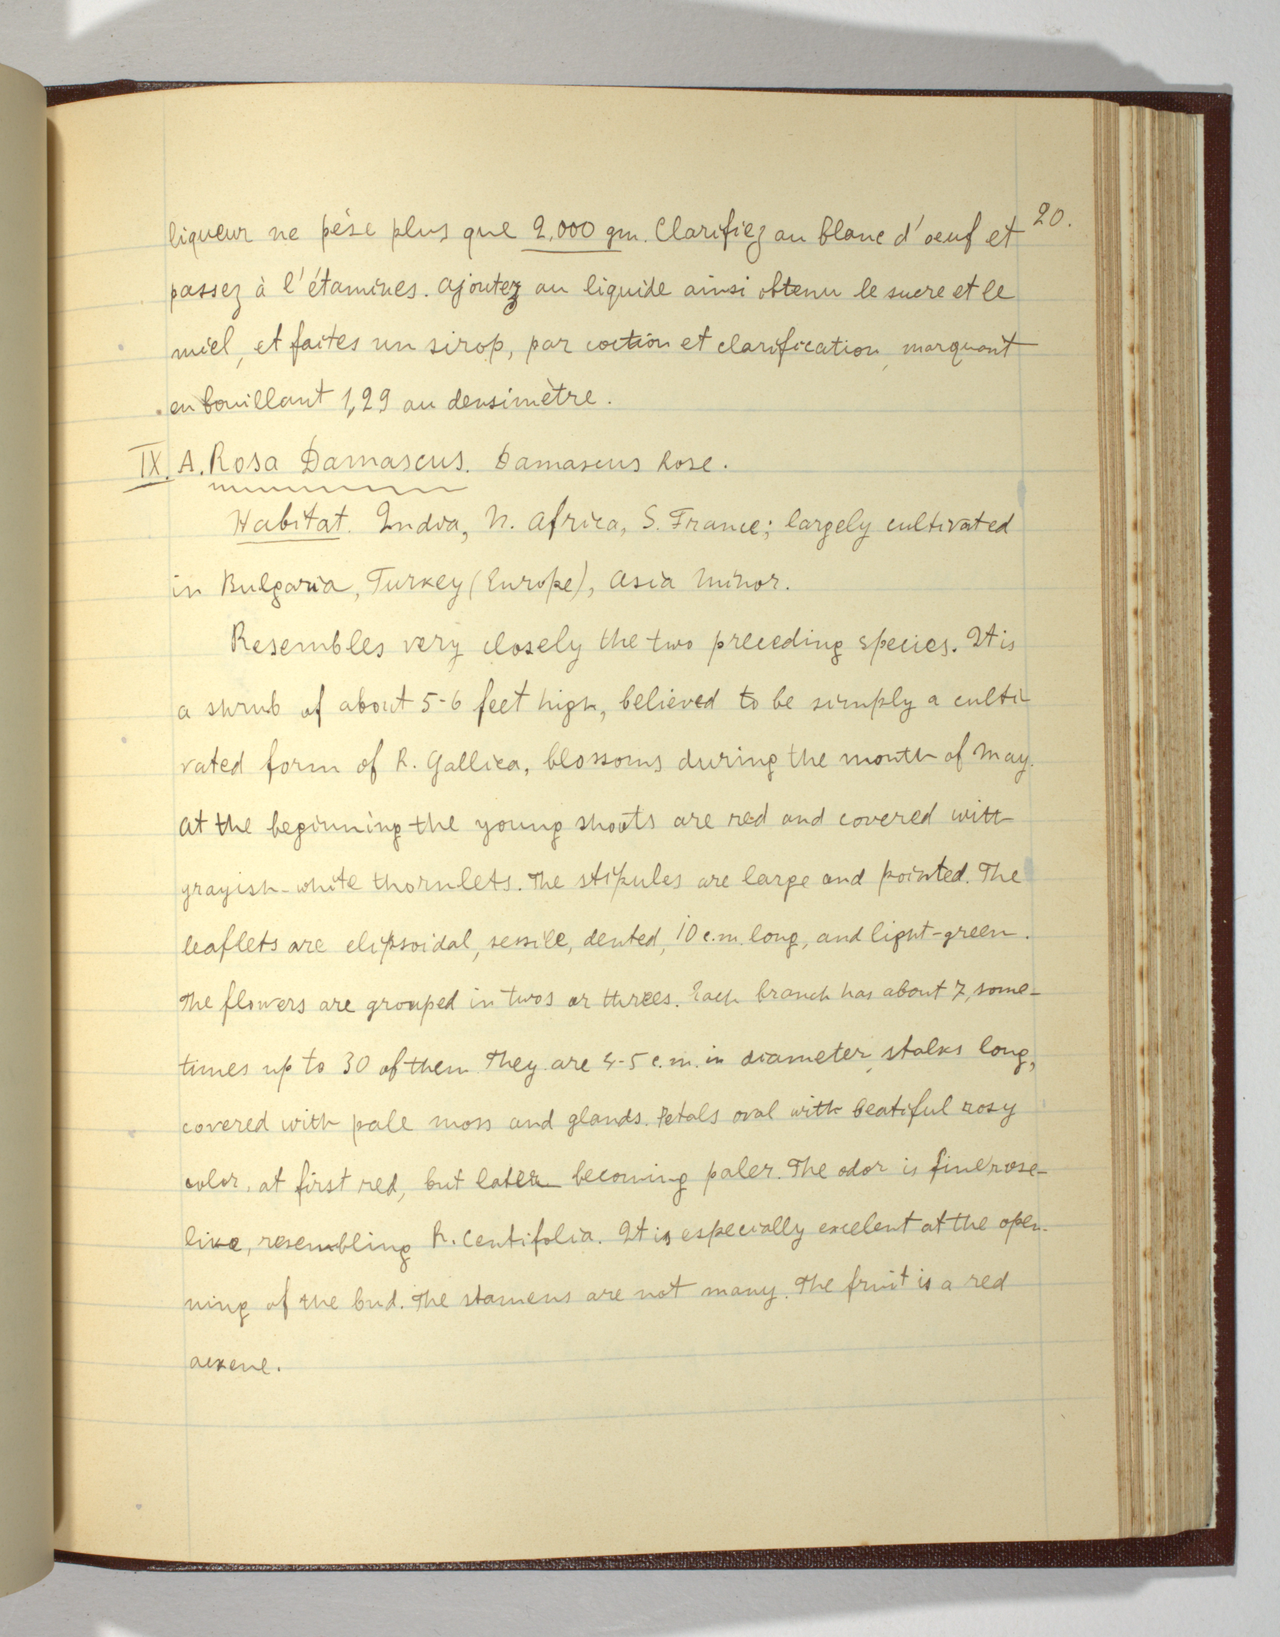 20.
liqueur ne pèse plus que 2,000 gm. Clarifiez au blanc d'oeuf et
passez à l'étamines. Ajoutez au liquide ainsi obtenu le sucre et le
miel, et faites un sirop, par coction et clarification, marquant
en bouillant 1,29 au densimètre.
IX. A. Rosa Damascus. Damascus Rose.
Habitat. India, N. Africa, S. France; largely cultivated
in Bulgaria, Turkey (Europe), Asia Minor.
Resembles very closely the two preceding species. It is
a shrub of about 5-6 feet high, believed to be simply a culti-
vated form of R. Gallica, blossoms during the month of May.
At the beginning the young shoots are red and covered with
grayish-white thornlets. The stipules are large and pointed. The
leaflets are elipsoidal, sessile, dented, 10 c.m. long, and light-green.
The flowers are grouped in twos or threes. Each branch has about 7, some-
times up to 30 of them. They are 4-5 c.m. in diameter, stalks long,
covered with pale moss and glands. Petals oval with beatiful rosy
color, at first red, but later becoming paler. The odor is fine rose-
like, resembling R. Centifolia. It is especially excelent at the open-
ning of the bud. The stamens are not many. The fruit is a red
ackene.